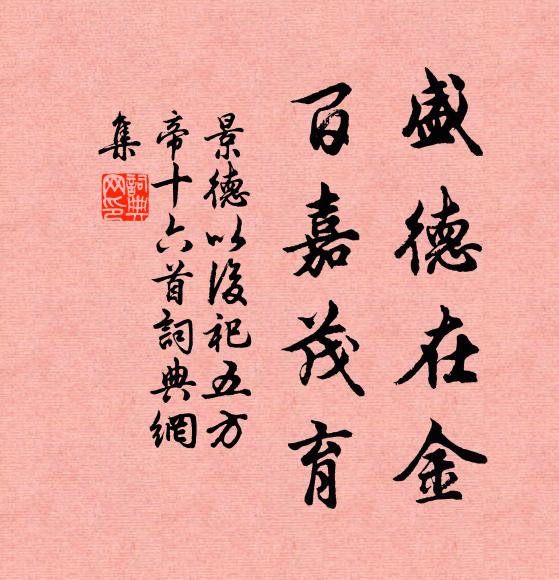 盛德在金
百嘉茂育
景德以後祀五方
帝十六首詞典網
集
詞典网印